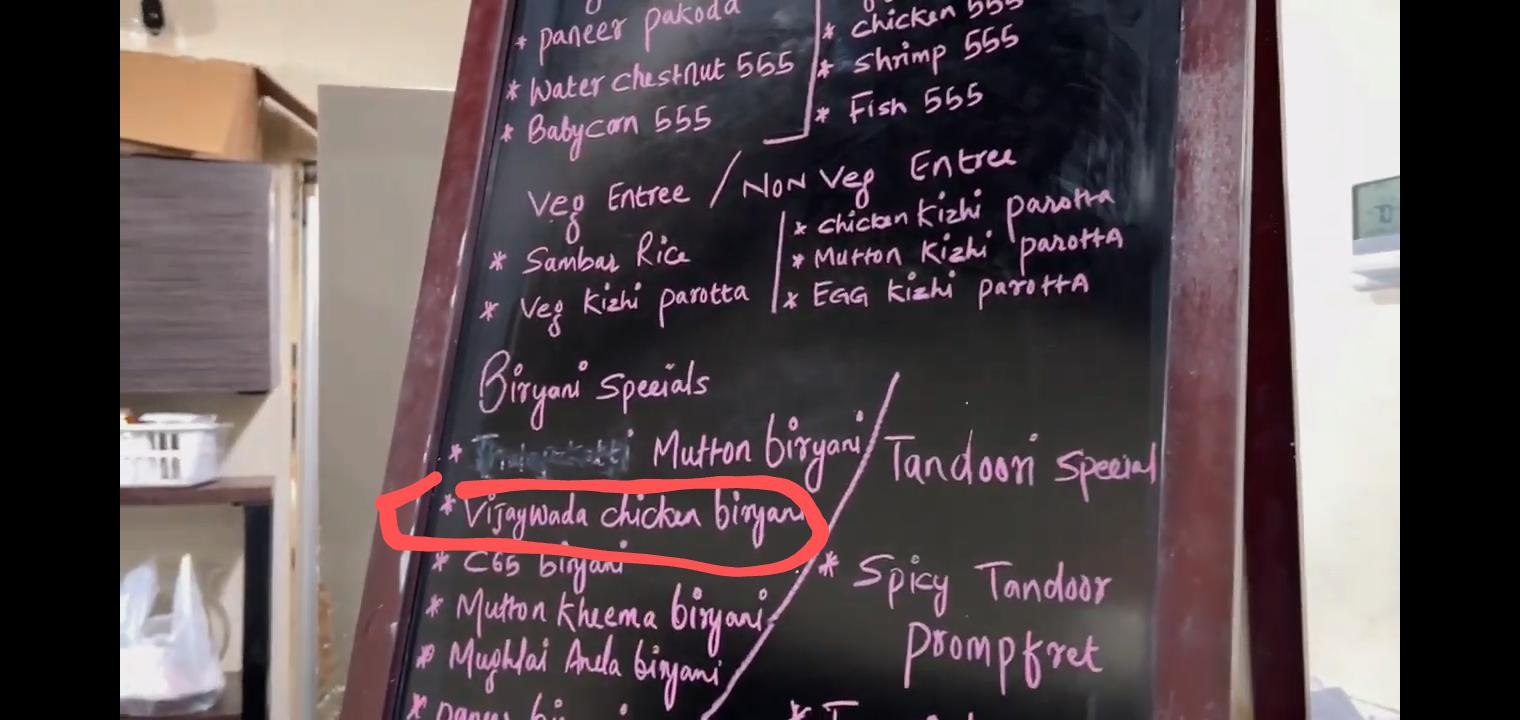 * paneer pakoda
* Water chestnut 555
* Babycorn 555
* chicken 555
* Shrimp 555
* Fish 555
Veg Entree / NON Veg Entree
* Sambar Rice
* Veg Kizhi parotta
* chicken Kizhi parotta
* Mutton Kizhi parottA
* EGG Kizhi parottA
Biryani Specials
* Mutton biryani
* Vijaywada chicken biryani
* C65 biryani
* Mutton kheema biryani
* Mughlai Anda biryani
* paneer
Tandoori Special
* Spicy Tandoor
Prompfret